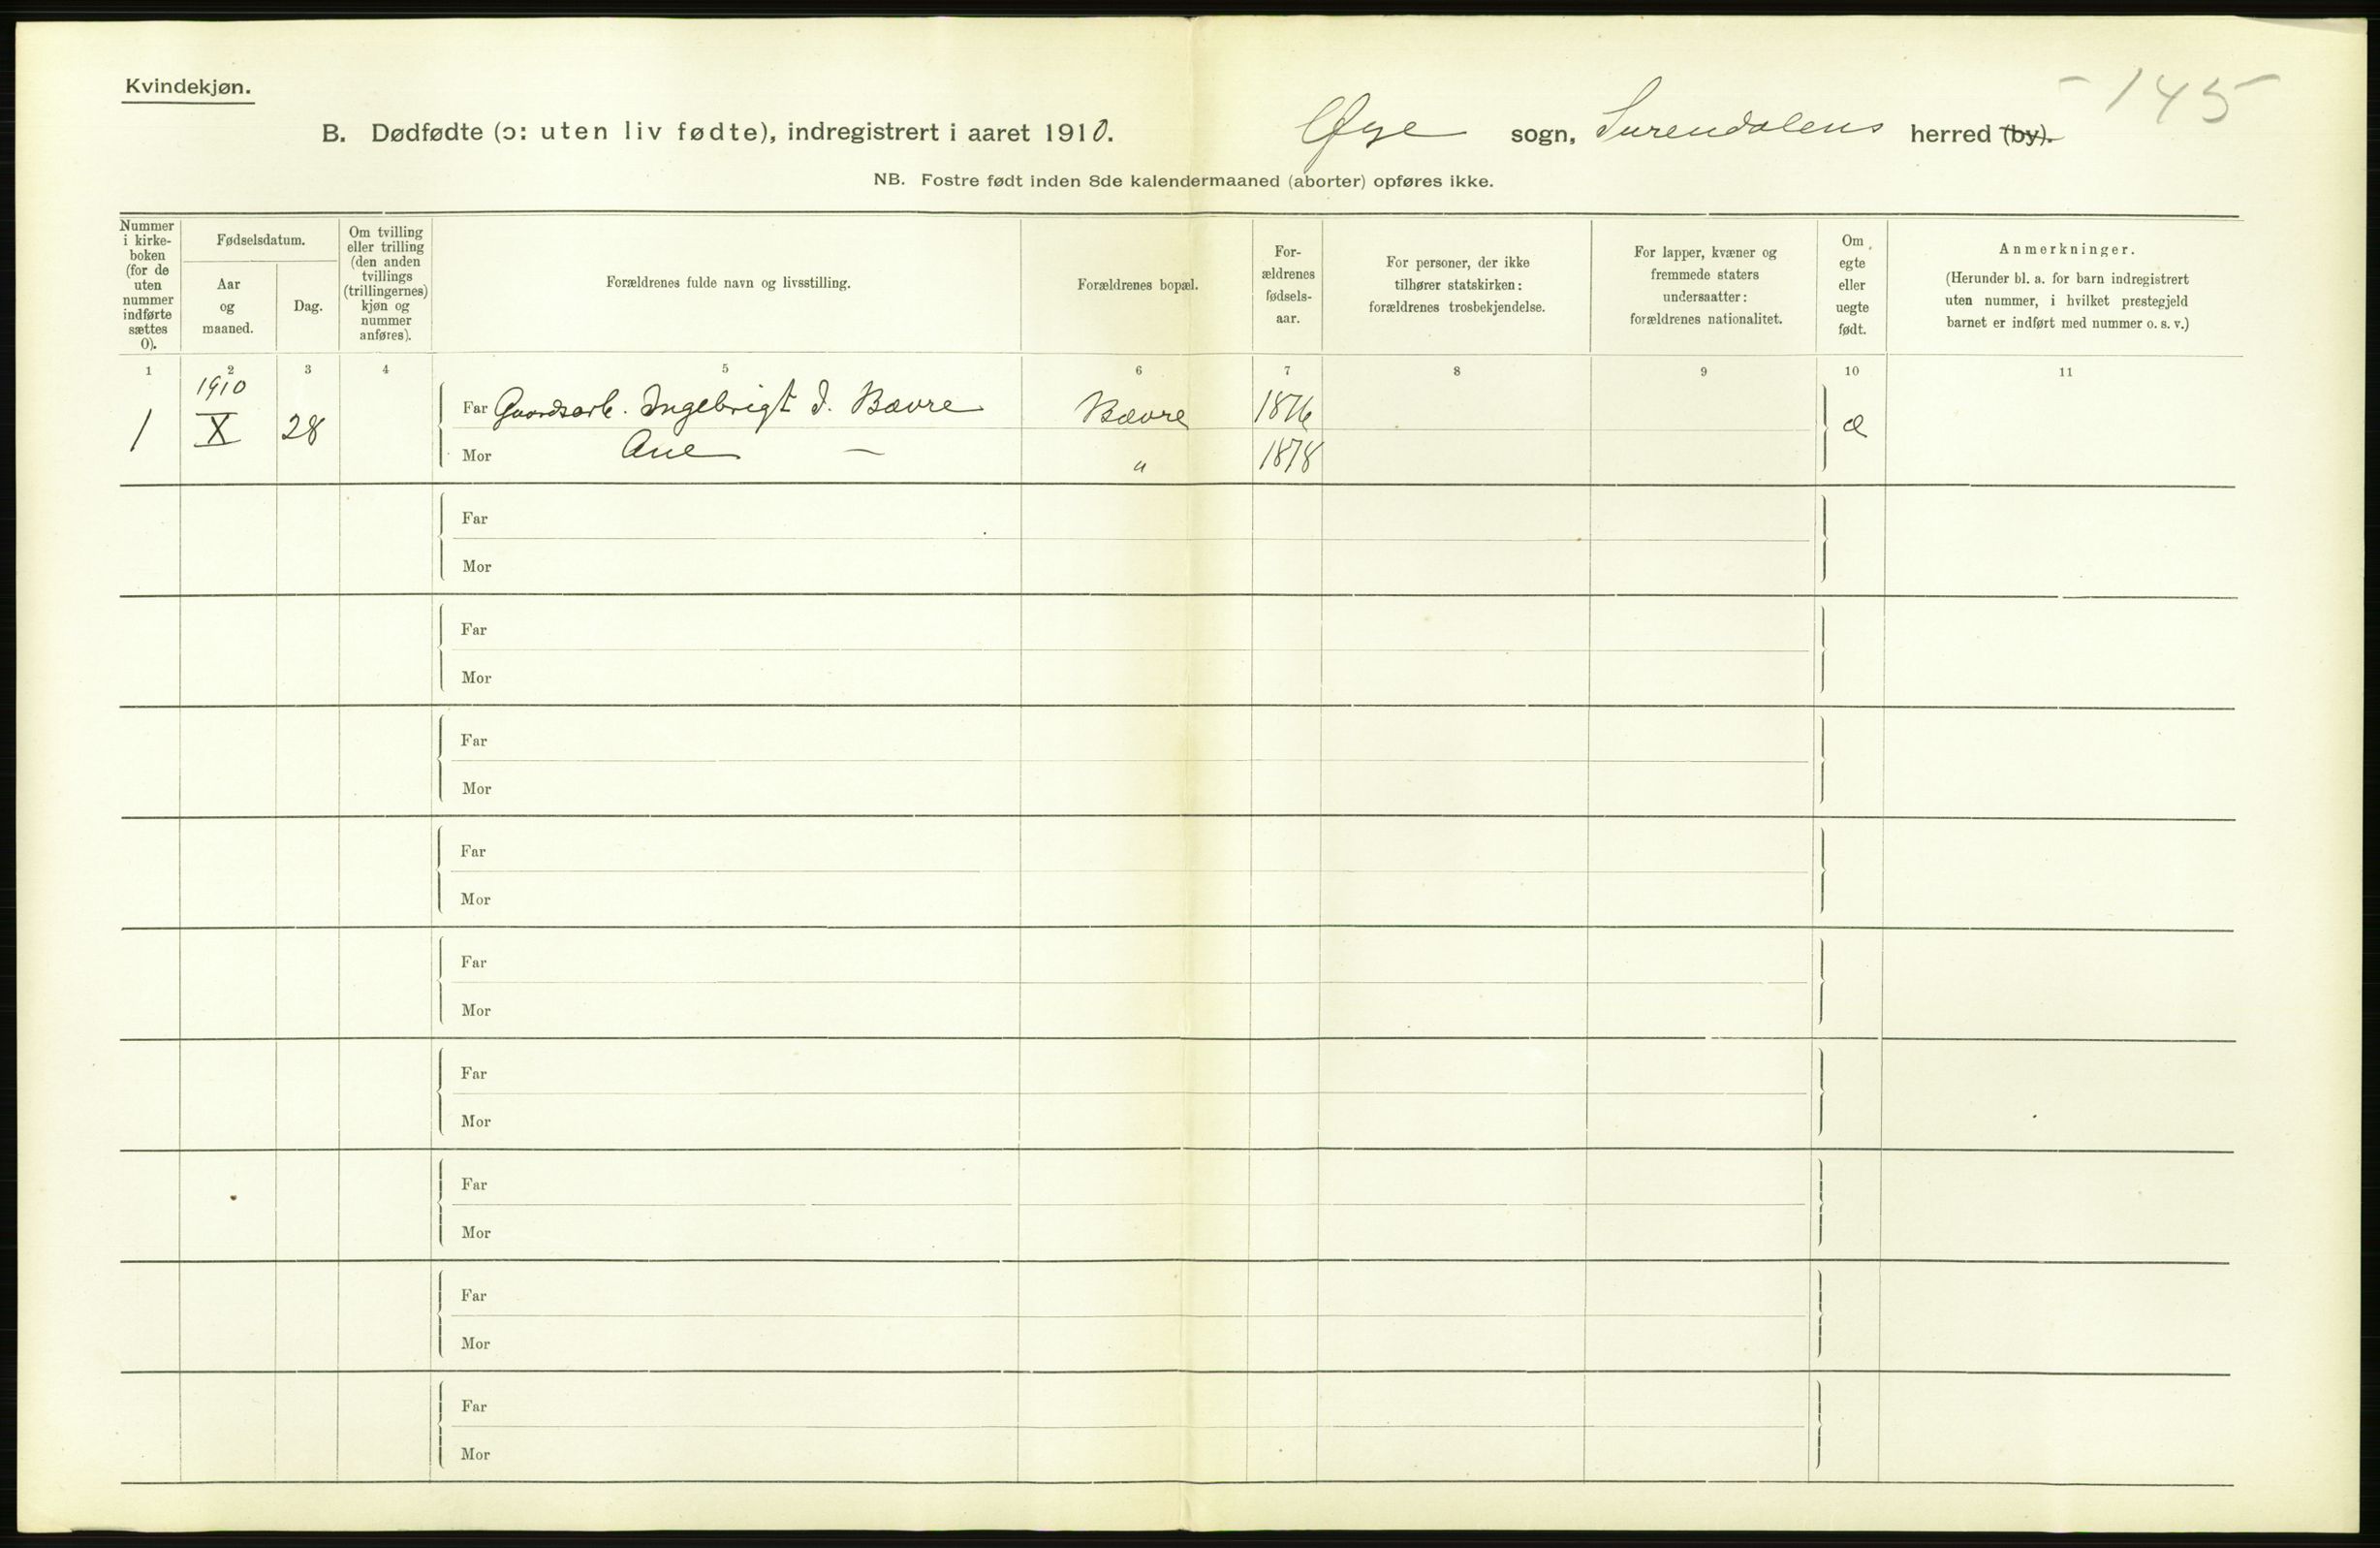 Kvindekjøn.
- 145
B. Dødfødte (ɔ: uten liv fødte), indregistrert i aaret 1910. Øye sogn, Surendalens herred (by).
NB. Fostre født inden 8de kalendermaaned (aborter) opføres ikke.
Nummer
i kirke-
boken
(for de
uten
nummer
indførte
sættes
0).
Fødselsdatum.
Aar
og
maaned.
Dag.
Om tvilling
eller trilling
(den anden
tvillings
(trillingernes)
kjøn og
nummer
anføres).
Forældrenes fulde navn og livsstilling.
Forældrenes bopæl.
For-
ældrenes
fødsels-
aar.
For personer, der ikke
tilhører statskirken:
forældrenes trosbekjendelse.
For lapper, kvæner og
fremmede staters
undersaatter:
forældrenes nationalitet.
Om
egte
eller
uegte
født.
Anmerkninger.
(Herunder bl. a. for barn indregistrert
uten nummer, i hvilket prestegjeld
barnet er indført med nummer o. s. v.)
1 2 3 4 5 6 7 8 9 10 11
1910
1 X 28 Far Gaardsarb. Ingebrigt I. Bævre Bævre 1876 æ
Mor Ane — " 1878
Far
Mor
Far
Mor
Far
Mor
Far
Mor
Far
Mor
Far
Mor
Far
Mor
Far
Mor
Far
Mor